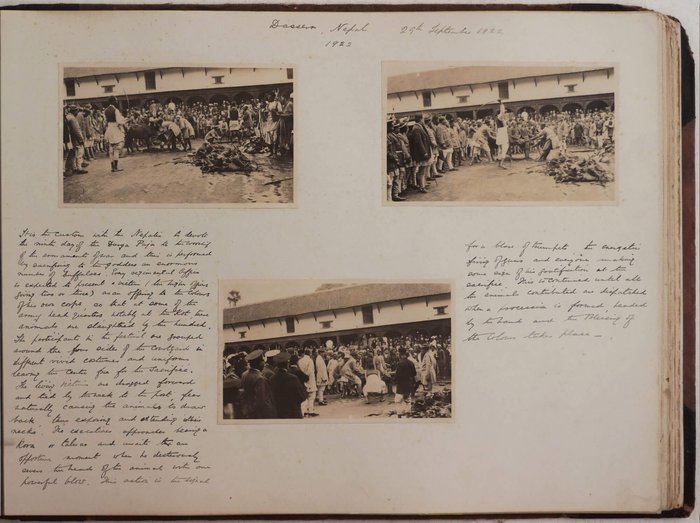 Dassera, Nepal 29th September 1922
1922
It is the custom with the Nepalis to devote
the ninth day of the Durga Puja to the worship
of the ornaments of war and this is performed
by sacrificing to the goddess an enormous
number of Buffaloes. Every regimental Officer
is expected to present a victim (the higher officers
giving two or three) as an offering to the Colours
of his own corps so that at some of the
army head quarters notably at the Kot these
animals are slaughtered by the hundred.
The participants in the festival are grouped
around the four sides of the Courtyard in
different vivid costumes and uniforms
leaving the Centre free for the Sacrifice.
The living victims are dragged forward
and tied by the neck to the post, fear
naturally causing the animals to draw
back thus exposing and extending their
necks. The executioner approaches bearing a
Kora or and awaits the
opportune moment when he dexterously
severs the head of the animal with one
powerful blow. This action is the signal
for a blare of trumpets the energetic
firing of guns and everyone making
some sign of his gratification at the
sacrifice. This is continued until all
the animals contributed are despatched
when a procession is formed headed
by the band and the Blessing of
the Colours takes place —